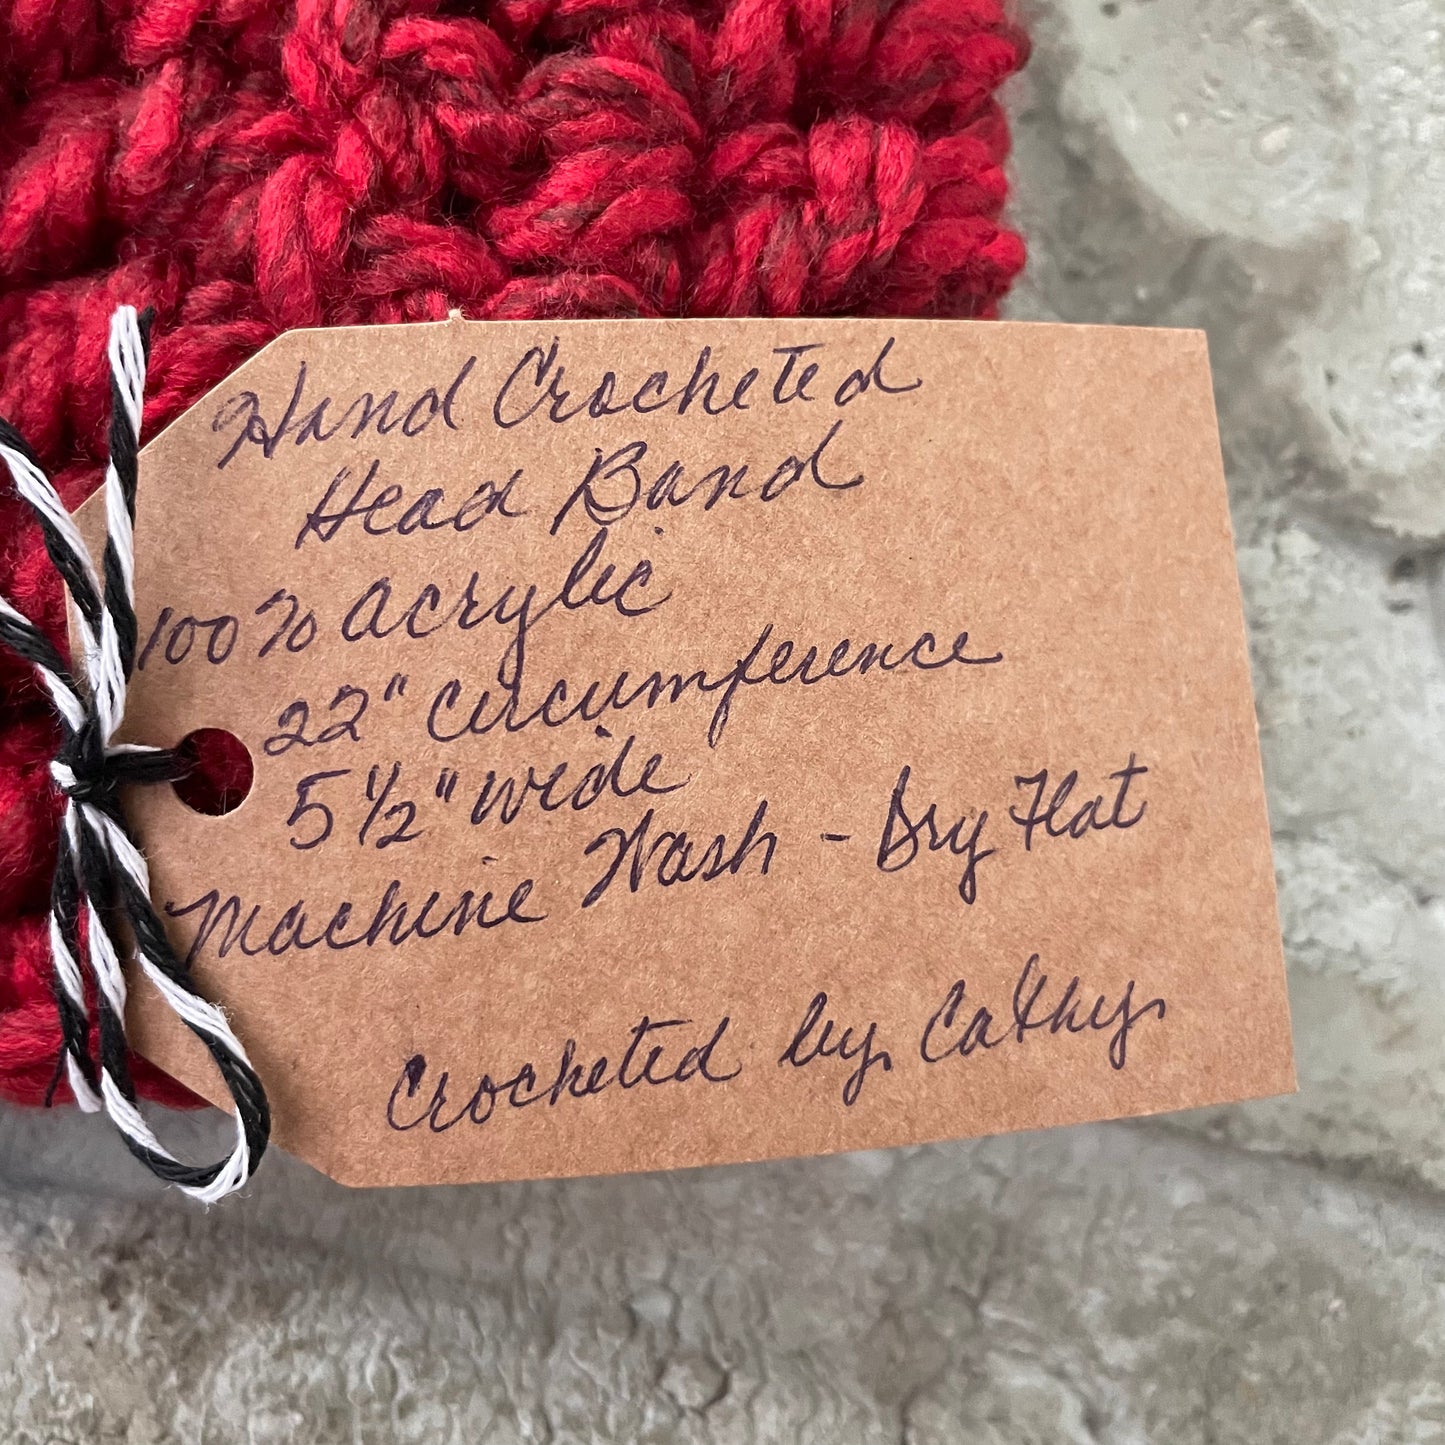 Hand Crocheted
Head Band
100% acrylic
22" circumference
5 1/2" wide
Machine Wash - Dry Flat
Crocheted by Cathy